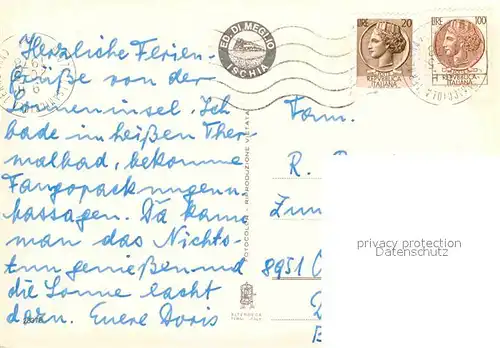 Herzliche Ferien-
Grüße von der
Sonneninsel. Ich
bade in heißen Ther
malbad, bekomme
Fangopackungen u.
Massagen. Da kann
man das Nichts-
tun genießen und
die Sonne lacht
dazu. Euere Doris
ED. DI MEGLIO
ISCHIA
LIRE 20
REPVBBLICA
ITALIANA
LIRE 100
REPVBBLICA
ITALIANA
FOTOCOLOR - RIPRODUZIONE VIETATA
Fam.
R.
8951
privacy protection
Datenschutz